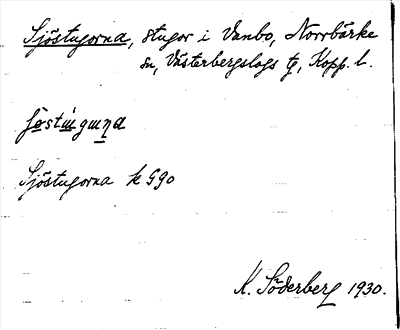 Sjöstugorna, stugor i Vanbo, Norrbärke
sn, Västerbergslags tg, Kopp. l.
Sjöstugorna k G90
K. Söderberg 1930.